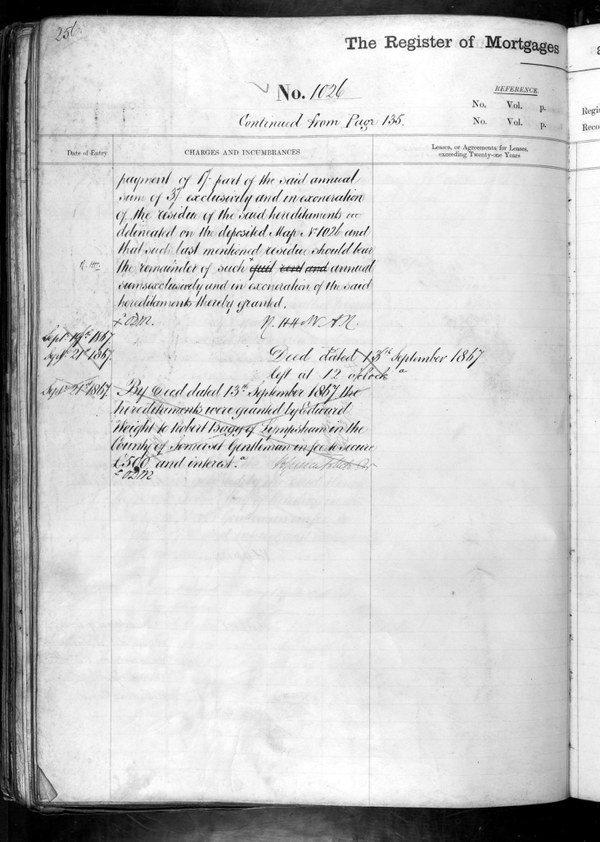 256
The Register of Mortgages
No. 1026
REFERENCE
No. Vol. p.
Continued from Page 135.
No. Vol. p.
Regi
Reco
Date of Entry
CHARGES AND INCUMBRANCES
Leases, or Agreements for Leases,
exceeding Twenty-one Years
payment of 1/- part of the said annual
sum of 3/ exclusively and in exoneration
of the residue of the said hereditaments
delineated on the deposited Map No 1026 and
that said last mentioned residue should bear
the remainder of such quit rent and annual
sums exclusively and in exoneration of the said
hereditaments thereby granted.
Sept. 19th 1867
Sept. 21st 1867
Deed dated 13th September 1867
left at 12 o'clock
Sept. 21st 1867.
By Deed dated 13th September 1867 the
hereditaments were granted by Edward
Wright to Robert Bagg of Lympsham in the
County of Somerset Gentleman in fee to secure
£500 and interest.